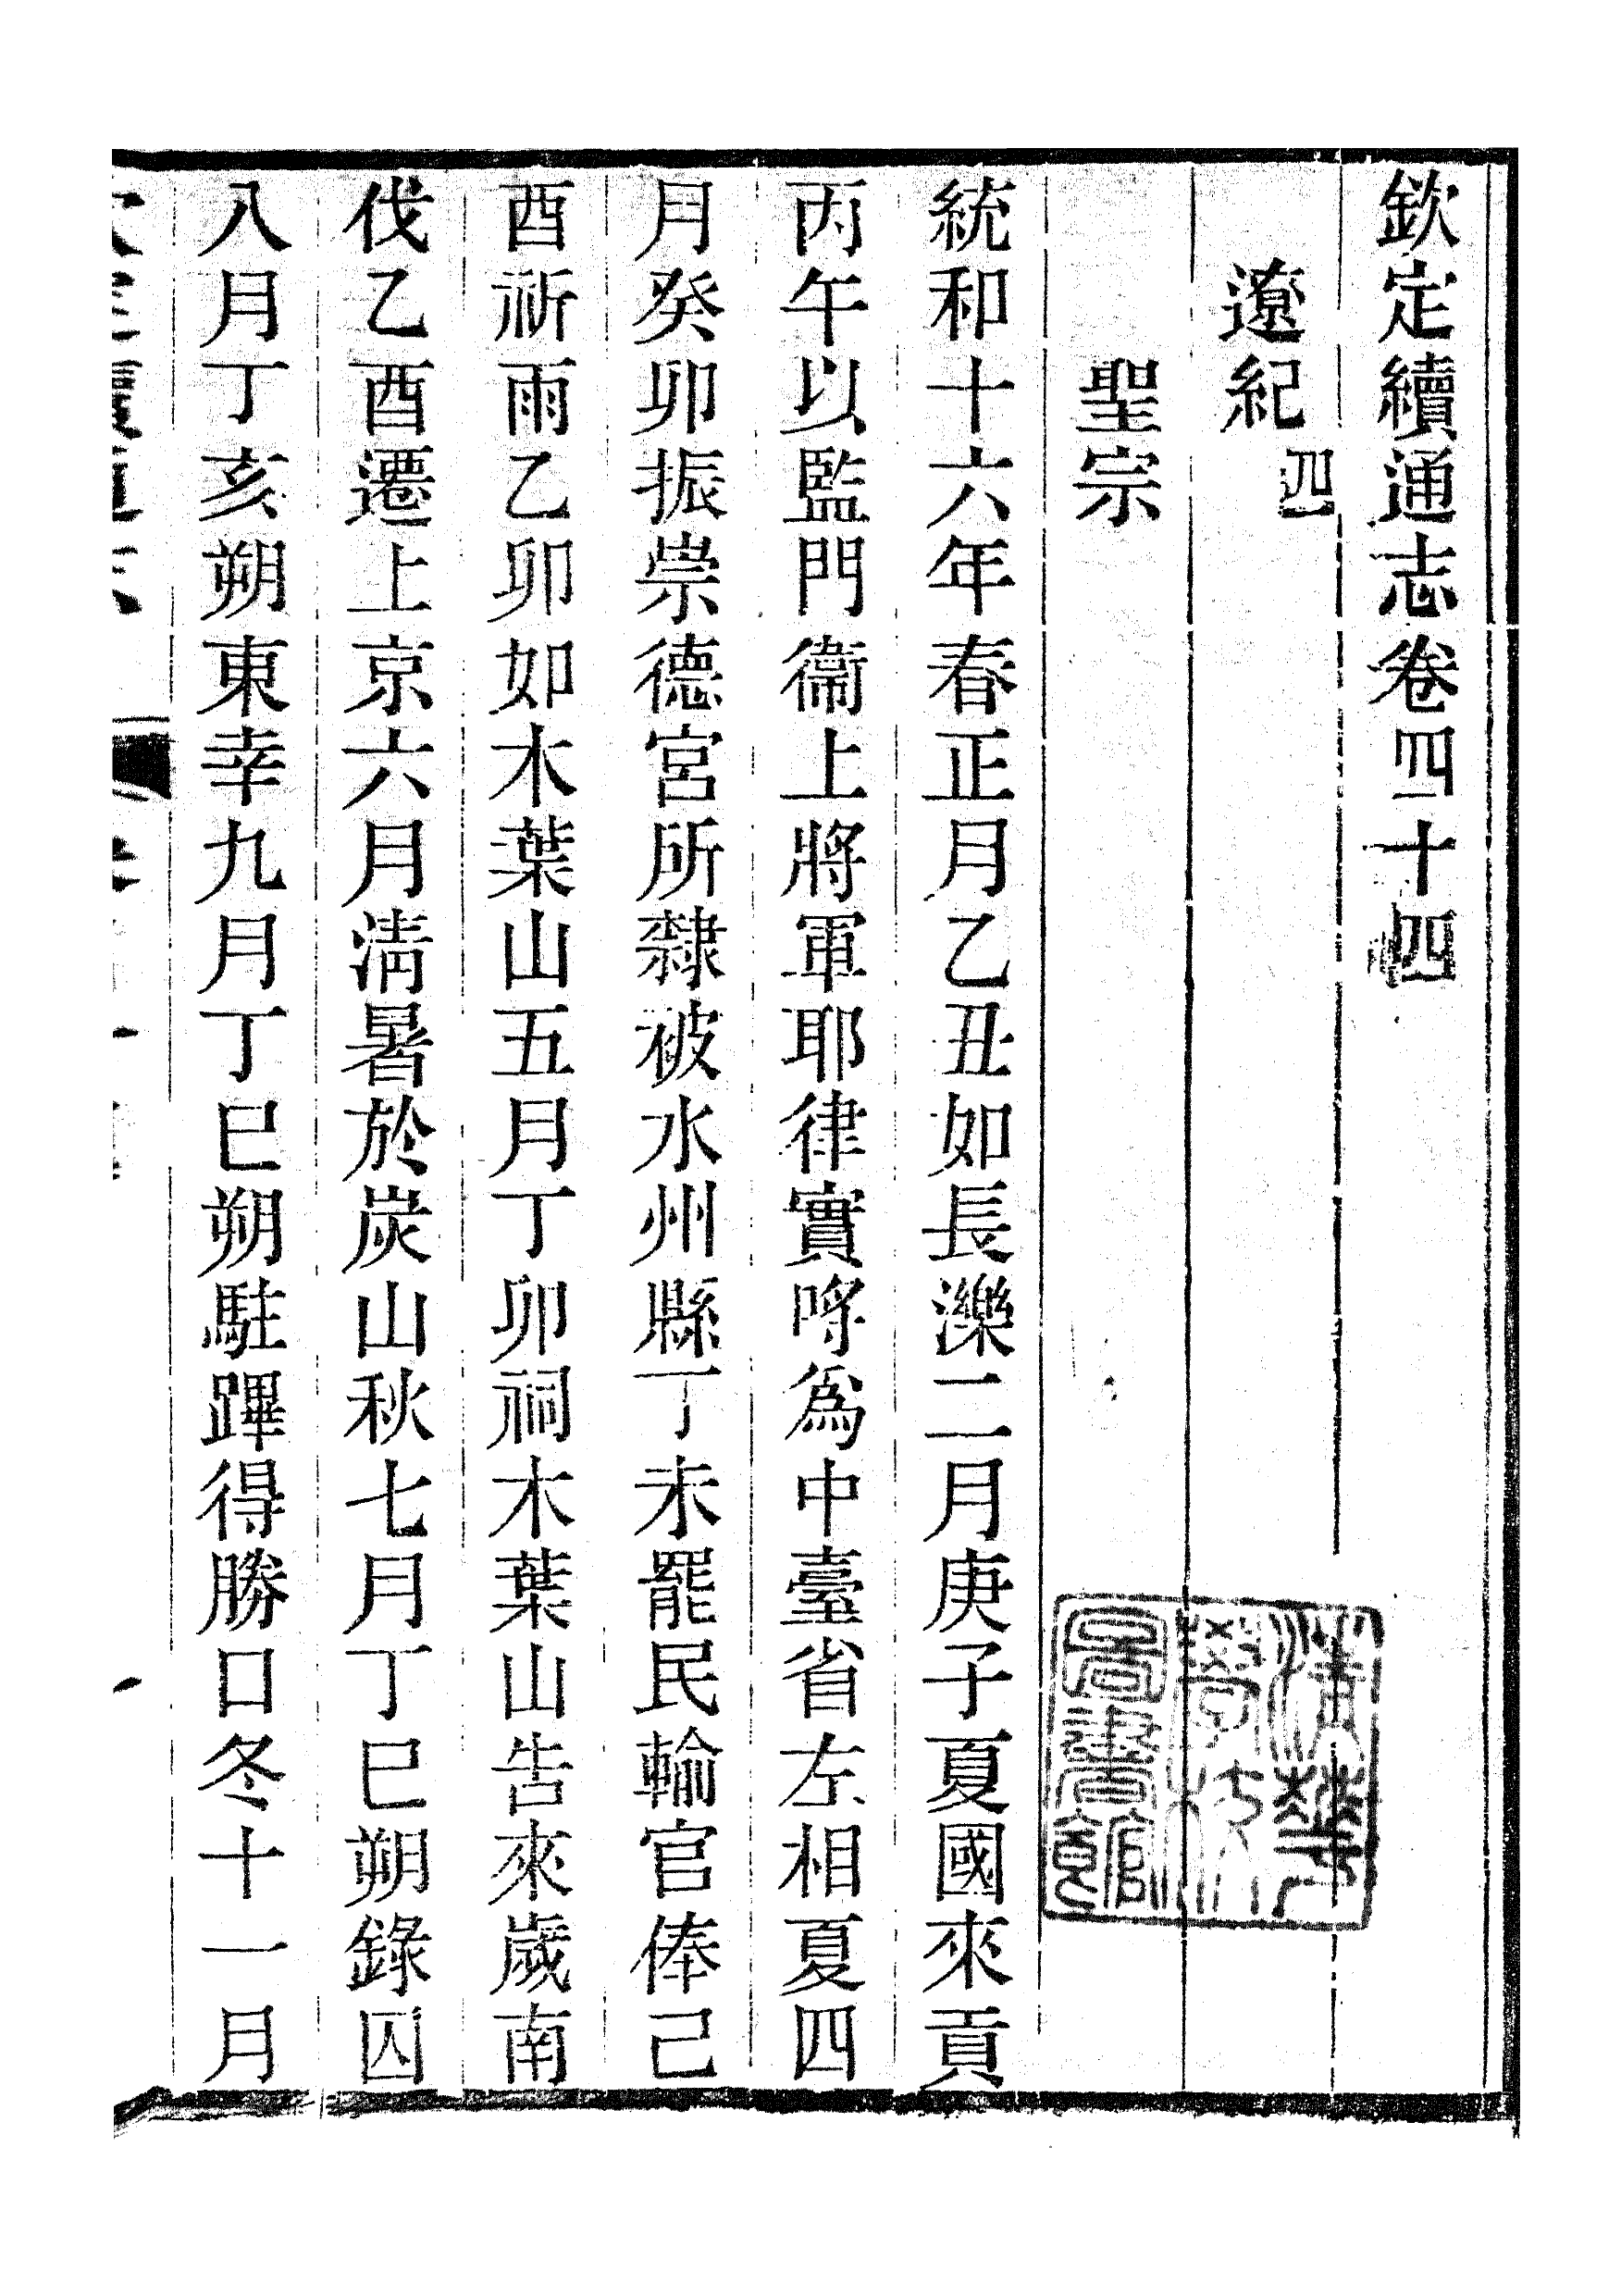 欽定續通志卷四十四
遼紀四
聖宗
統和十六年春正月乙丑如長濼二月庚子夏國來貢
丙午以監門衞上將軍耶律實哷爲中臺省左相夏四
月癸卯振崇德宮所隸被水州縣丁未罷民輸官俸己
酉祈雨乙卯如木葉山五月丁卯祠木葉山告來歲南
伐乙酉還上京六月淸暑於炭山秋七月丁巳朔錄囚
八月丁亥朔東幸九月丁巳朔駐蹕得勝口冬十一月
淸華
學校
圖書館